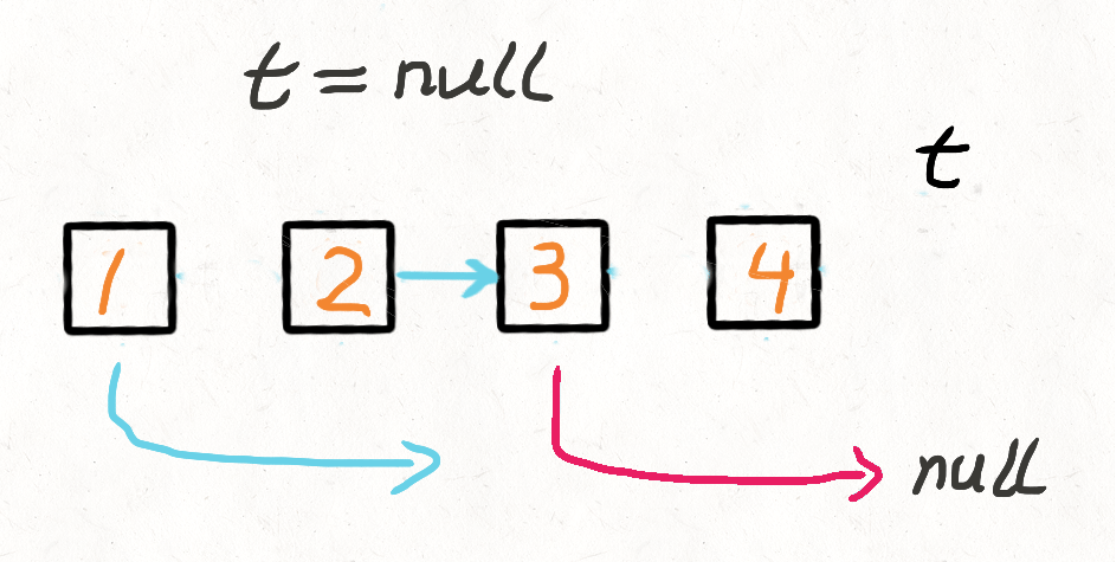 t = null
t
1 2 3 4
null